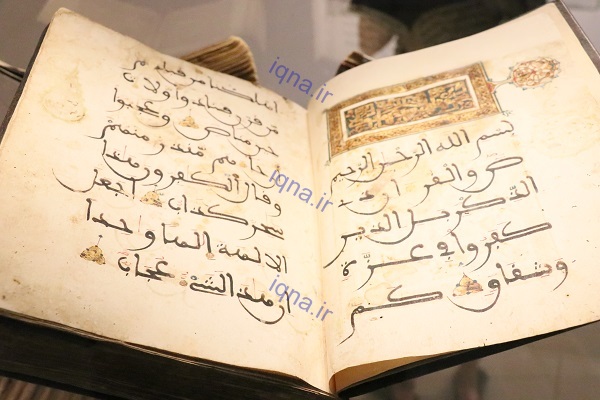 بسم الله الرحمن الرحيم
ص والقران ذي
الذكر بل الذين
كفروا في عزة
وشقاق كم
اهلكنا من قبلهم
من قرن فنادوا ولات
حين مناص وعجبوا
ان جاهم منذر منهم
وقال الكفرون هذا
سحر كذاب اجعل
الالهة الها وحدا
ان هذا لشيء عجاب
iqna.ir
iqna.ir
iqna.ir